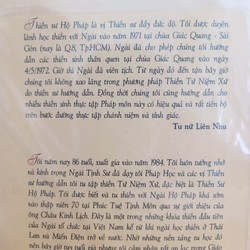 Thiền sư Hộ Pháp là vị Thiền sư đầy đức độ. Tôi được duyên
lành học thiền với Ngài vào năm 1971 tại chùa Giác Quang - Sài
Gòn (nay là Q.8, TpHCM). Ngài đã cho phép chúng tôi hướng
dẫn các thiền sinh thân quen tại chùa Giác Quang vào ngày
4/5/1972. Giờ thì Ngài đã viên tịch. Từ ngày đó đến tận bây giờ
chúng tôi không xao lãng trong phương pháp Thiền Tứ Niệm Xứ
do thiền sư hướng dẫn. Đồng thời chúng tôi cũng hướng dẫn cho
nhiều thiền sinh thực tập Pháp môn này có hiệu quả và rất tiến bộ
trên bước đường thực tập chánh niệm và tỉnh giác.
Tu nữ Liên Như
Tôi năm nay 86 tuổi, xuất gia vào năm 1984. Tôi luôn tưởng nhớ
và kính trọng Ngài Tịnh Sự đã dạy tôi pháp Học và các vị Thiền
sư đã hướng dẫn tôi tu tập thiền Tứ Niệm Xứ, đặc biệt là Thiền sư
Hộ Pháp. Tôi được biết và tu thiền với Ngài Hộ Pháp khá sớm
vào thập niên 70 tại Phúc Tuệ Tịnh Môn qua sự giới thiệu của
ông Châu Kinh Lịch. Đây là một trong những khóa thiền đầu tiên
của Ngài tổ chức tại Việt Nam kể từ khi ngài học thiền ở Thái
Lan và Miến Điện trở về nước. Nhờ những nền tảng tu học đó